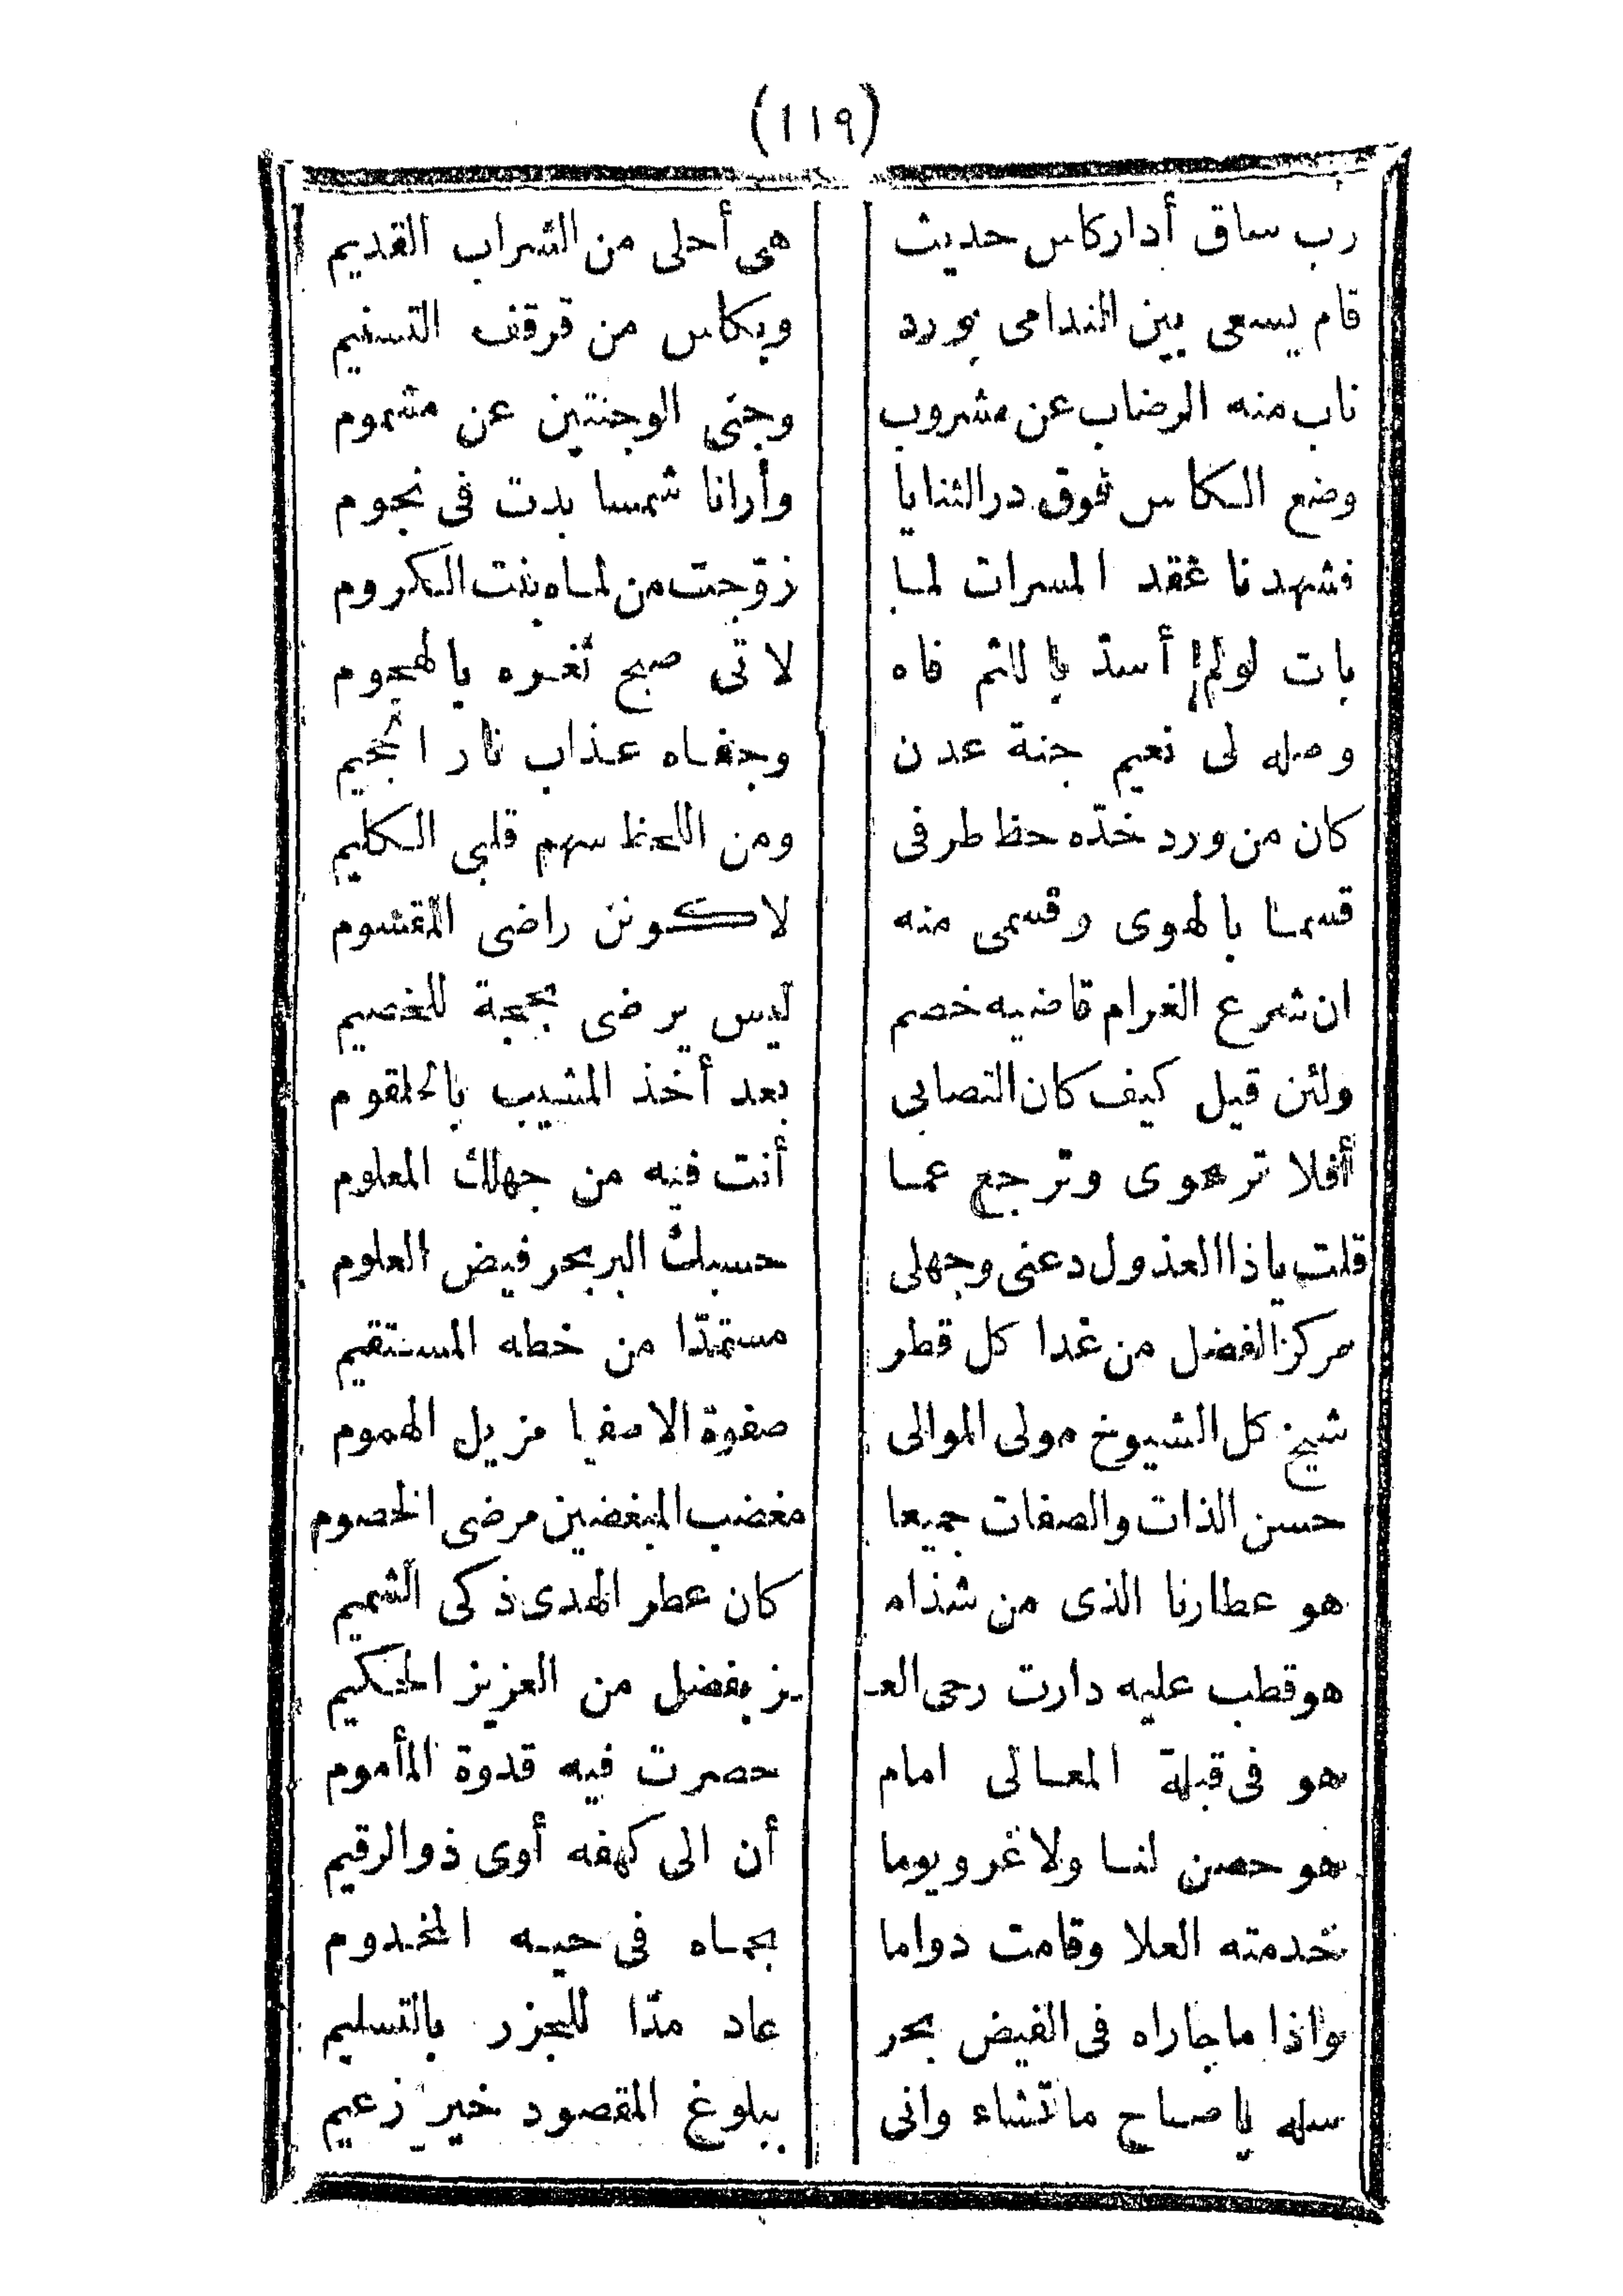 (١١٩)
رب ساق أدار كاس حديث هى أحلى من الشراب القديم
قام يسعى بين الندامى بورد وبكاس من قرقف التسنيم
ناب منه الرضاب عن مشروب وجنى الوجنتين عن مشموم
وضع الكاس فوق در الثنايا وأرانا شمسا بدت فى نجوم
فشهدنا عقد المسرات لما زوّجت من لماه بنت الكروم
بات لو لم أسدّ باللثم فاه لاتى صبح ثغره بالهجوم
وصله لى نعيم جنة عدن وجفاه عذاب نار الجحيم
كان من ورد خدّه حظ طرفى ومن اللحظ سهم قلبى الكليم
قسما بالهوى وقسمى منه لاكونن راضى المقسوم
ان شرع الغرام قاضيه خصم ليس يرضى بحجة للخصيم
ولئن قيل كيف كان التصابى بعد أخذ المشيب بالحلقوم
أفلا ترعوى وترجع عما أنت فيه من جهلك المعلوم
قلت ياذا العذول دعنى وجهلى حسبك البر بحر فيض العلوم
مركز الفضل من غدا كل قطر مستمدّا من خطه المستقيم
شيخ كل الشيوخ مولى الموالى صفوة الاصفيا مزيل الهموم
حسن الذات والصفات جميعا مغضب المبغضين مرضى الخصوم
هو عطارنا الذى من شذاه كان عطر الهدى ذكى الشميم
هو قطب عليه دارت رحى العـ ـز بفضل من العزيز الحكيم
هو فى قبلة المعالى امام حصرت فيه قدوة المأموم
هو حصن لنا ولا غرو يوما أن الى كهفه أوى ذو الرقيم
خدمته العلا وقامت دواما بحماه فى حيه المخدوم
واذا ما جاراه فى الفيض بحر عاد مدّا للجزر بالتسليم
سله ياصاح ما تشاء وانى ببلوغ المقصود خير زعيم